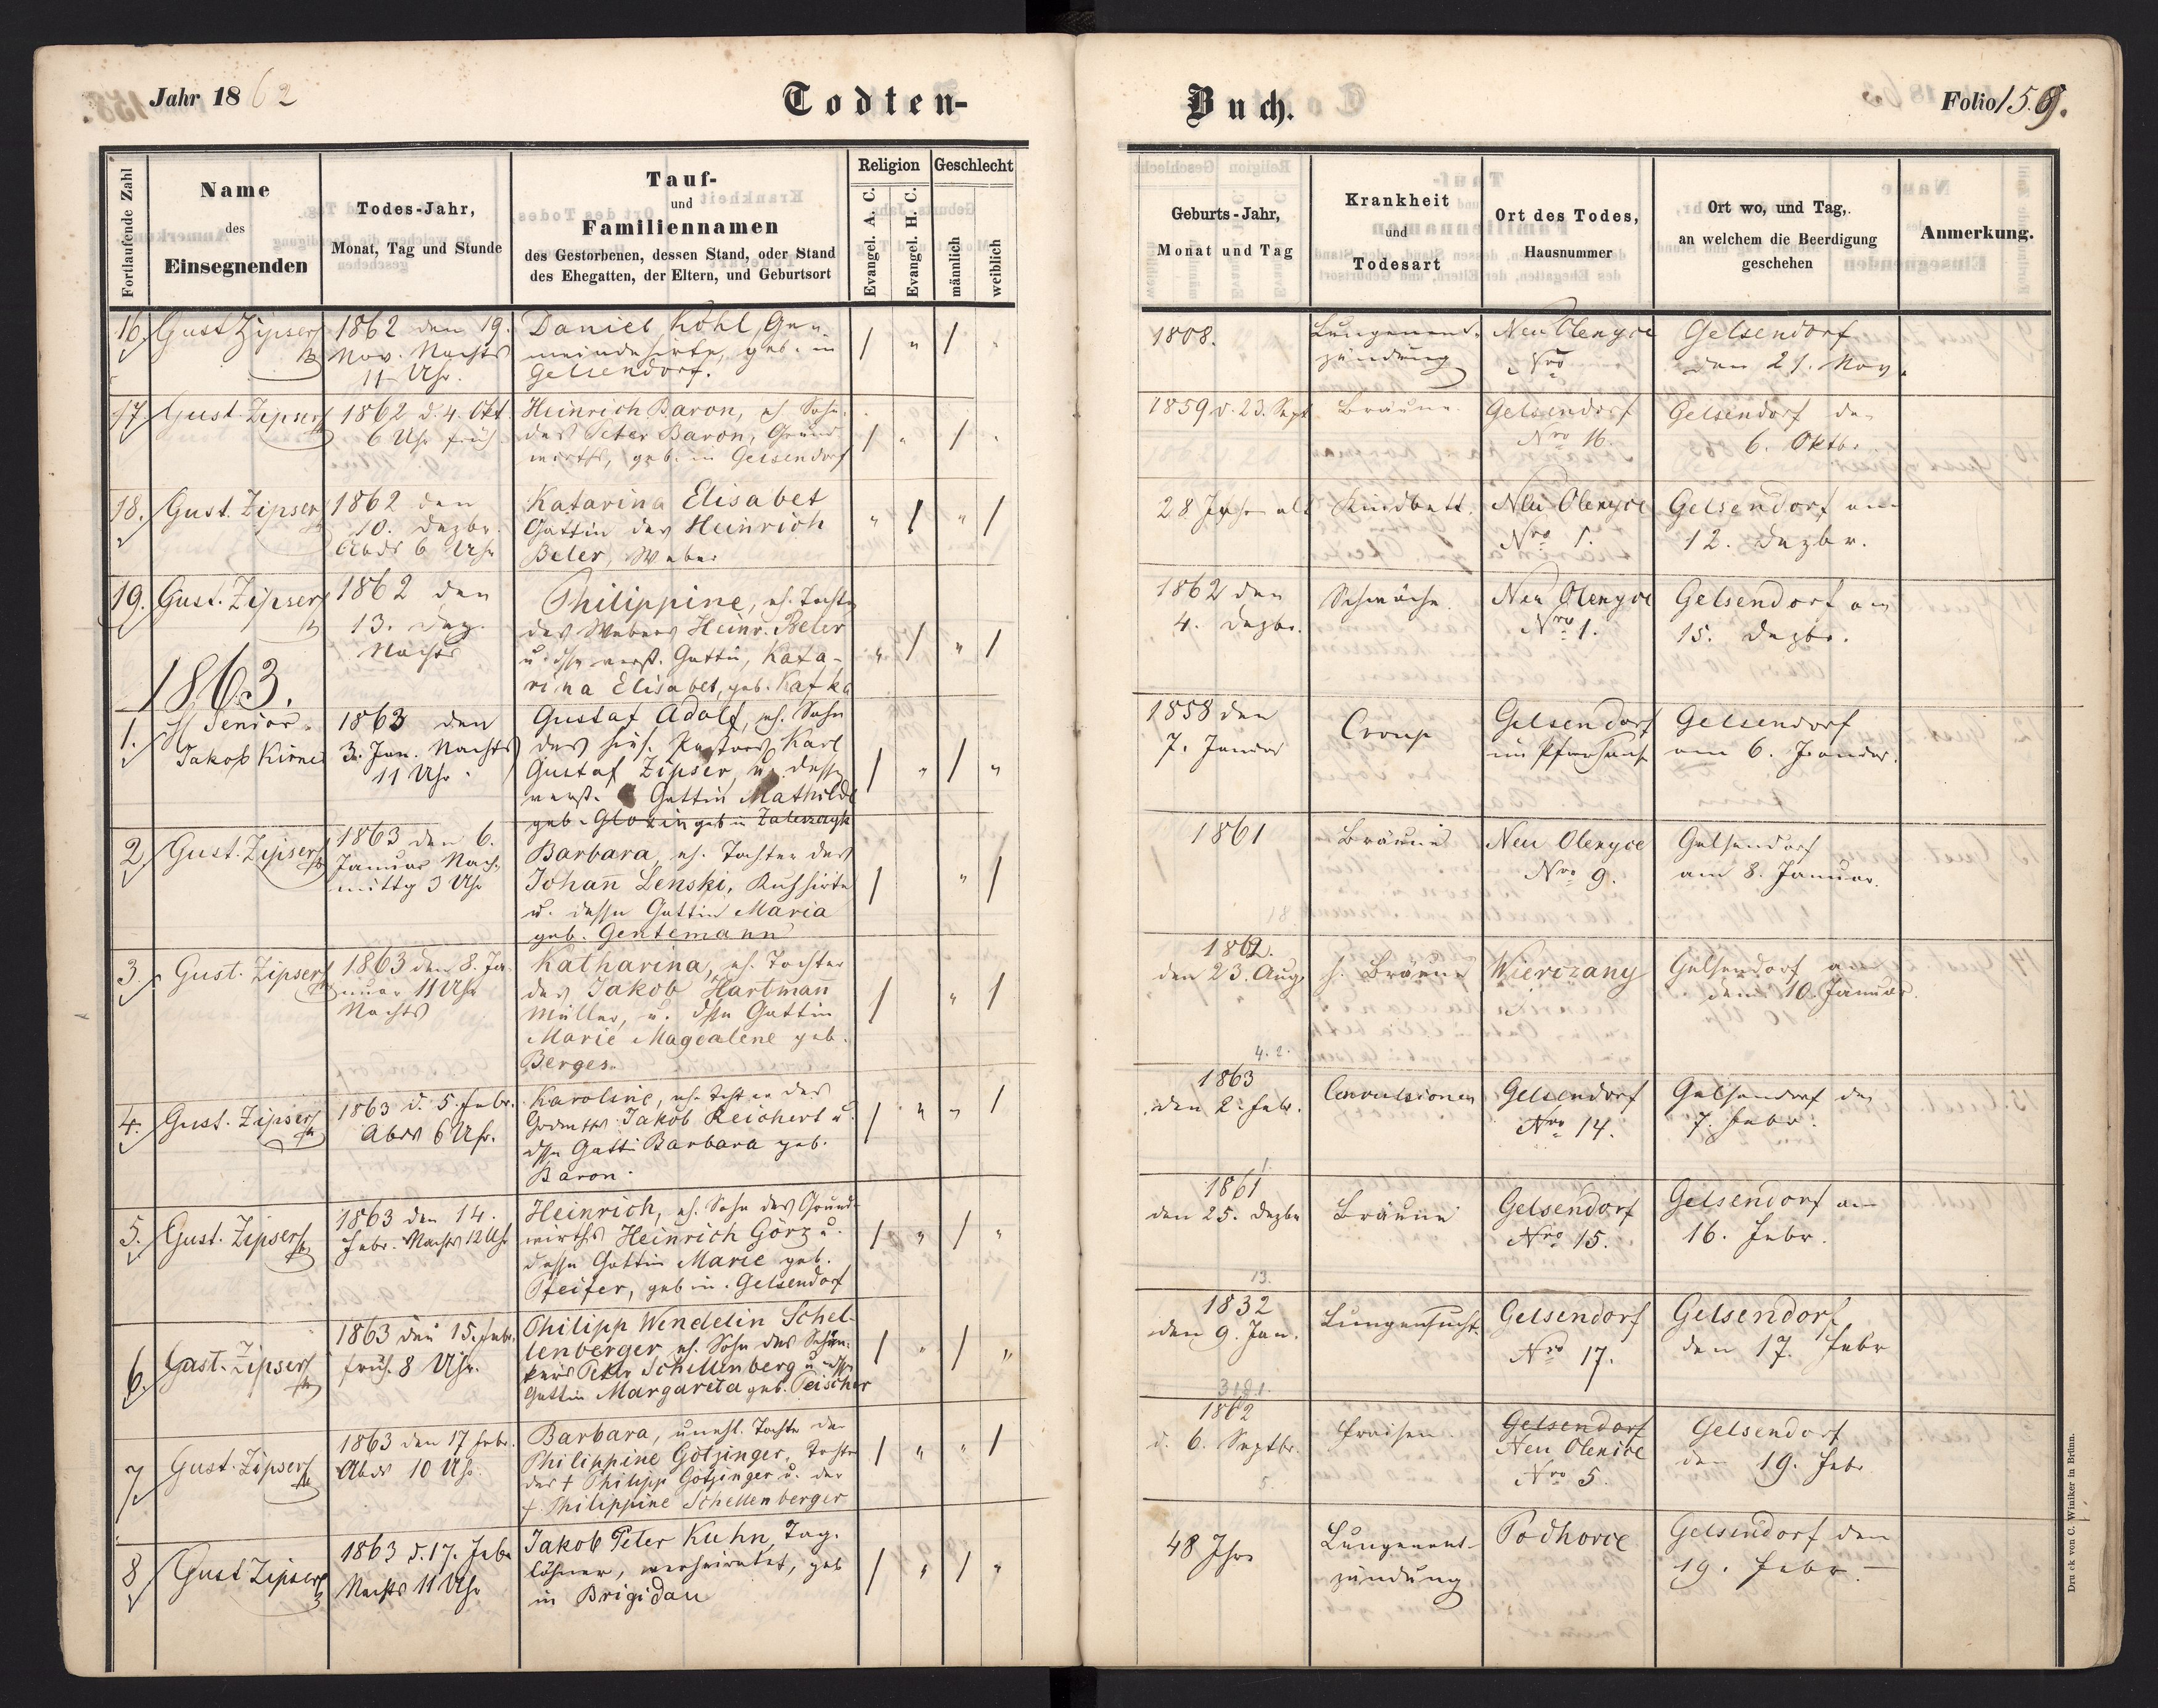 Jahr 1862
Todten-
Buch.
Folio 159.
Fortlaufende Zahl
Name
des
Einsegnenden
Todes-Jahr,
Monat, Tag und Stunde
Tauf-
und
Familiennamen
des Gestorbenen, dessen Stand, oder Stand
des Ehegatten, der Eltern, und Geburtsort
Religion
Evangel. A. C.
Evangel. H. C.
Geschlecht
männlich
weiblich
Geburts-Jahr,
Monat und Tag
Krankheit
und
Todesart
Ort des Todes,
Hausnummer
Ort wo, und Tag,
an welchem die Beerdigung
geschehen
Anmerkung.
16. Gust Zipser
1862 den 19.
Nov. Nachts
11 Uhr.
Daniel Kohl, Ge-
meindehirte, geb. in
Gelsendorf.
/ " / "
1808.
Lungenent-
zündung
Neu Olenyce
Nro
Gelsendorf
den 21. Nov.
17. Gust. Zipser
1862 d. 4. Okt.
6 Uhr früh
Heinrich Baron, eh. Sohn
des Peter Baron, Grund
wirths, geb. in Gelsendorf
/ " / "
1859 d. 23. Sept
Bräune
Gelsendorf
Nro 16.
Gelsendorf den
6. Oktbr.
18. Gust. Zipser
1862 den
10. Dezbr.
Abds 6 Uhr
Katarina Elisabet
Gattin des Heinrich
Beler, Weber
" / " /
28 Jahr alt
Kindbett.
Neu Olenyce
Nro 1.
Gelsendorf am
12. Dezbr.
19. Gust. Zipser
1862 den
13. Dez.
Nachts
Philippine, eh. Tochter
des Webers Heinr. Beler
u. verst. Gattin, Kata-
rina Elisabet, geb. Kafka
" / " /
1862 den
4. Dezbr.
Schwäche
Neu Olenyce
Nro 1.
Gelsendorf am
15. Dezbr.
1863.
1. Senior
Jakob Kirne
1863 den
3. Jan. Nachts
11 Uhr
Gustaf Adolf, eh. Sohn
des hies. Pastors Karl
Gustaf Zipser, u. dessen
verst. Gattin Mathilde
geb. Glozin geb in Zaleszczyk
/ " / "
1858 den
7. Januar
Croup
Gelsendorf
im Pfarrhause
Gelsendorf
am 6. Januar.
2. Gust. Zipser
1863 den 6.
Januar Nach-
mittg 3 Uhr
Barbara, eh. Tochter des
Johann Lenski, Kuhhirte
u. dessen Gattin Maria
geb. Gentemann
/ " /
1861
Bräune
Neu Olenyce
Nro 9.
Gelsendorf
am 8. Januar.
3. Gust. Zipser
1863 den 8. Ja-
nuar 11 Uhr
Nachts
Katharina, eh. Tochter
des Jakob Hartman
Müller, u. dssn Gattin
Marie Magdalene geb.
Berges.
/ " /
1862.
den 23. Aug.
h. Bräune
Wierczany
Gelsendorf
den 10. Januar.
4. Gust. Zipser
1863 d. 5. Febr.
Abds 6 Uhr.
Karoline, eh. Tochter des
Jakob Reichert u.
dssn Gattin Barbara geb.
Baron.
/ " " /
4. 2.
1863
den 2. Febr.
Convulsionen
Gelsendorf
Nro 14.
Gelsendorf den
7. Febr.
5. Gust. Zipser
1863 den 14.
Febr. Nachts 12 Uhr
Heinrich, eh. Sohn des Grund-
wirths Heinrich Görz u.
dessen Gattin Marie geb.
Pfeifer, geb in Gelsendorf
/ " / "
1861
den 25. Dezbr
Bräune
Gelsendorf
Nro 15.
Gelsendorf am
16. Febr.
6. Gust. Zipser
1863 den 15. Febr.
früh 8 Uhr.
Philipp Wendelin Schel-
lenberger eh. Sohn des Schän-
kers Peter Schellenberg u. dssn
Gattin Margareta geb. Peischer
/ " / "
13.
1832
den 9. Jan.
Lungensucht.
Gelsendorf
Nro 17.
Gelsendorf
den 17. Febr
7. Gust. Zipser
1863 den 17 Febr.
Abds 10 Uhr.
Barbara, unehl. Tochter der
Philippine Götzinger, Tochter
des † Philipp Götzinger u. der
† Philippine Schellenberger
/ " " /
1862
d. 6. Septbr.
5.
Fraisen
Gelsendorf
Neu Olenice
Nro 5.
Gelsendorf
den 19. Febr
8. Gust Zipser
1863 d. 17. Febr
Nachts 11 Uhr
Jakob Peter Kuhn, Tag-
löhner, verheiratet, geb
in Brigidau
/ " / "
48 Jhr
Lungenent-
zündung
Podhorce
Gelsendorf den
19. Febr.
Druck von C. Winiker in Brünn.